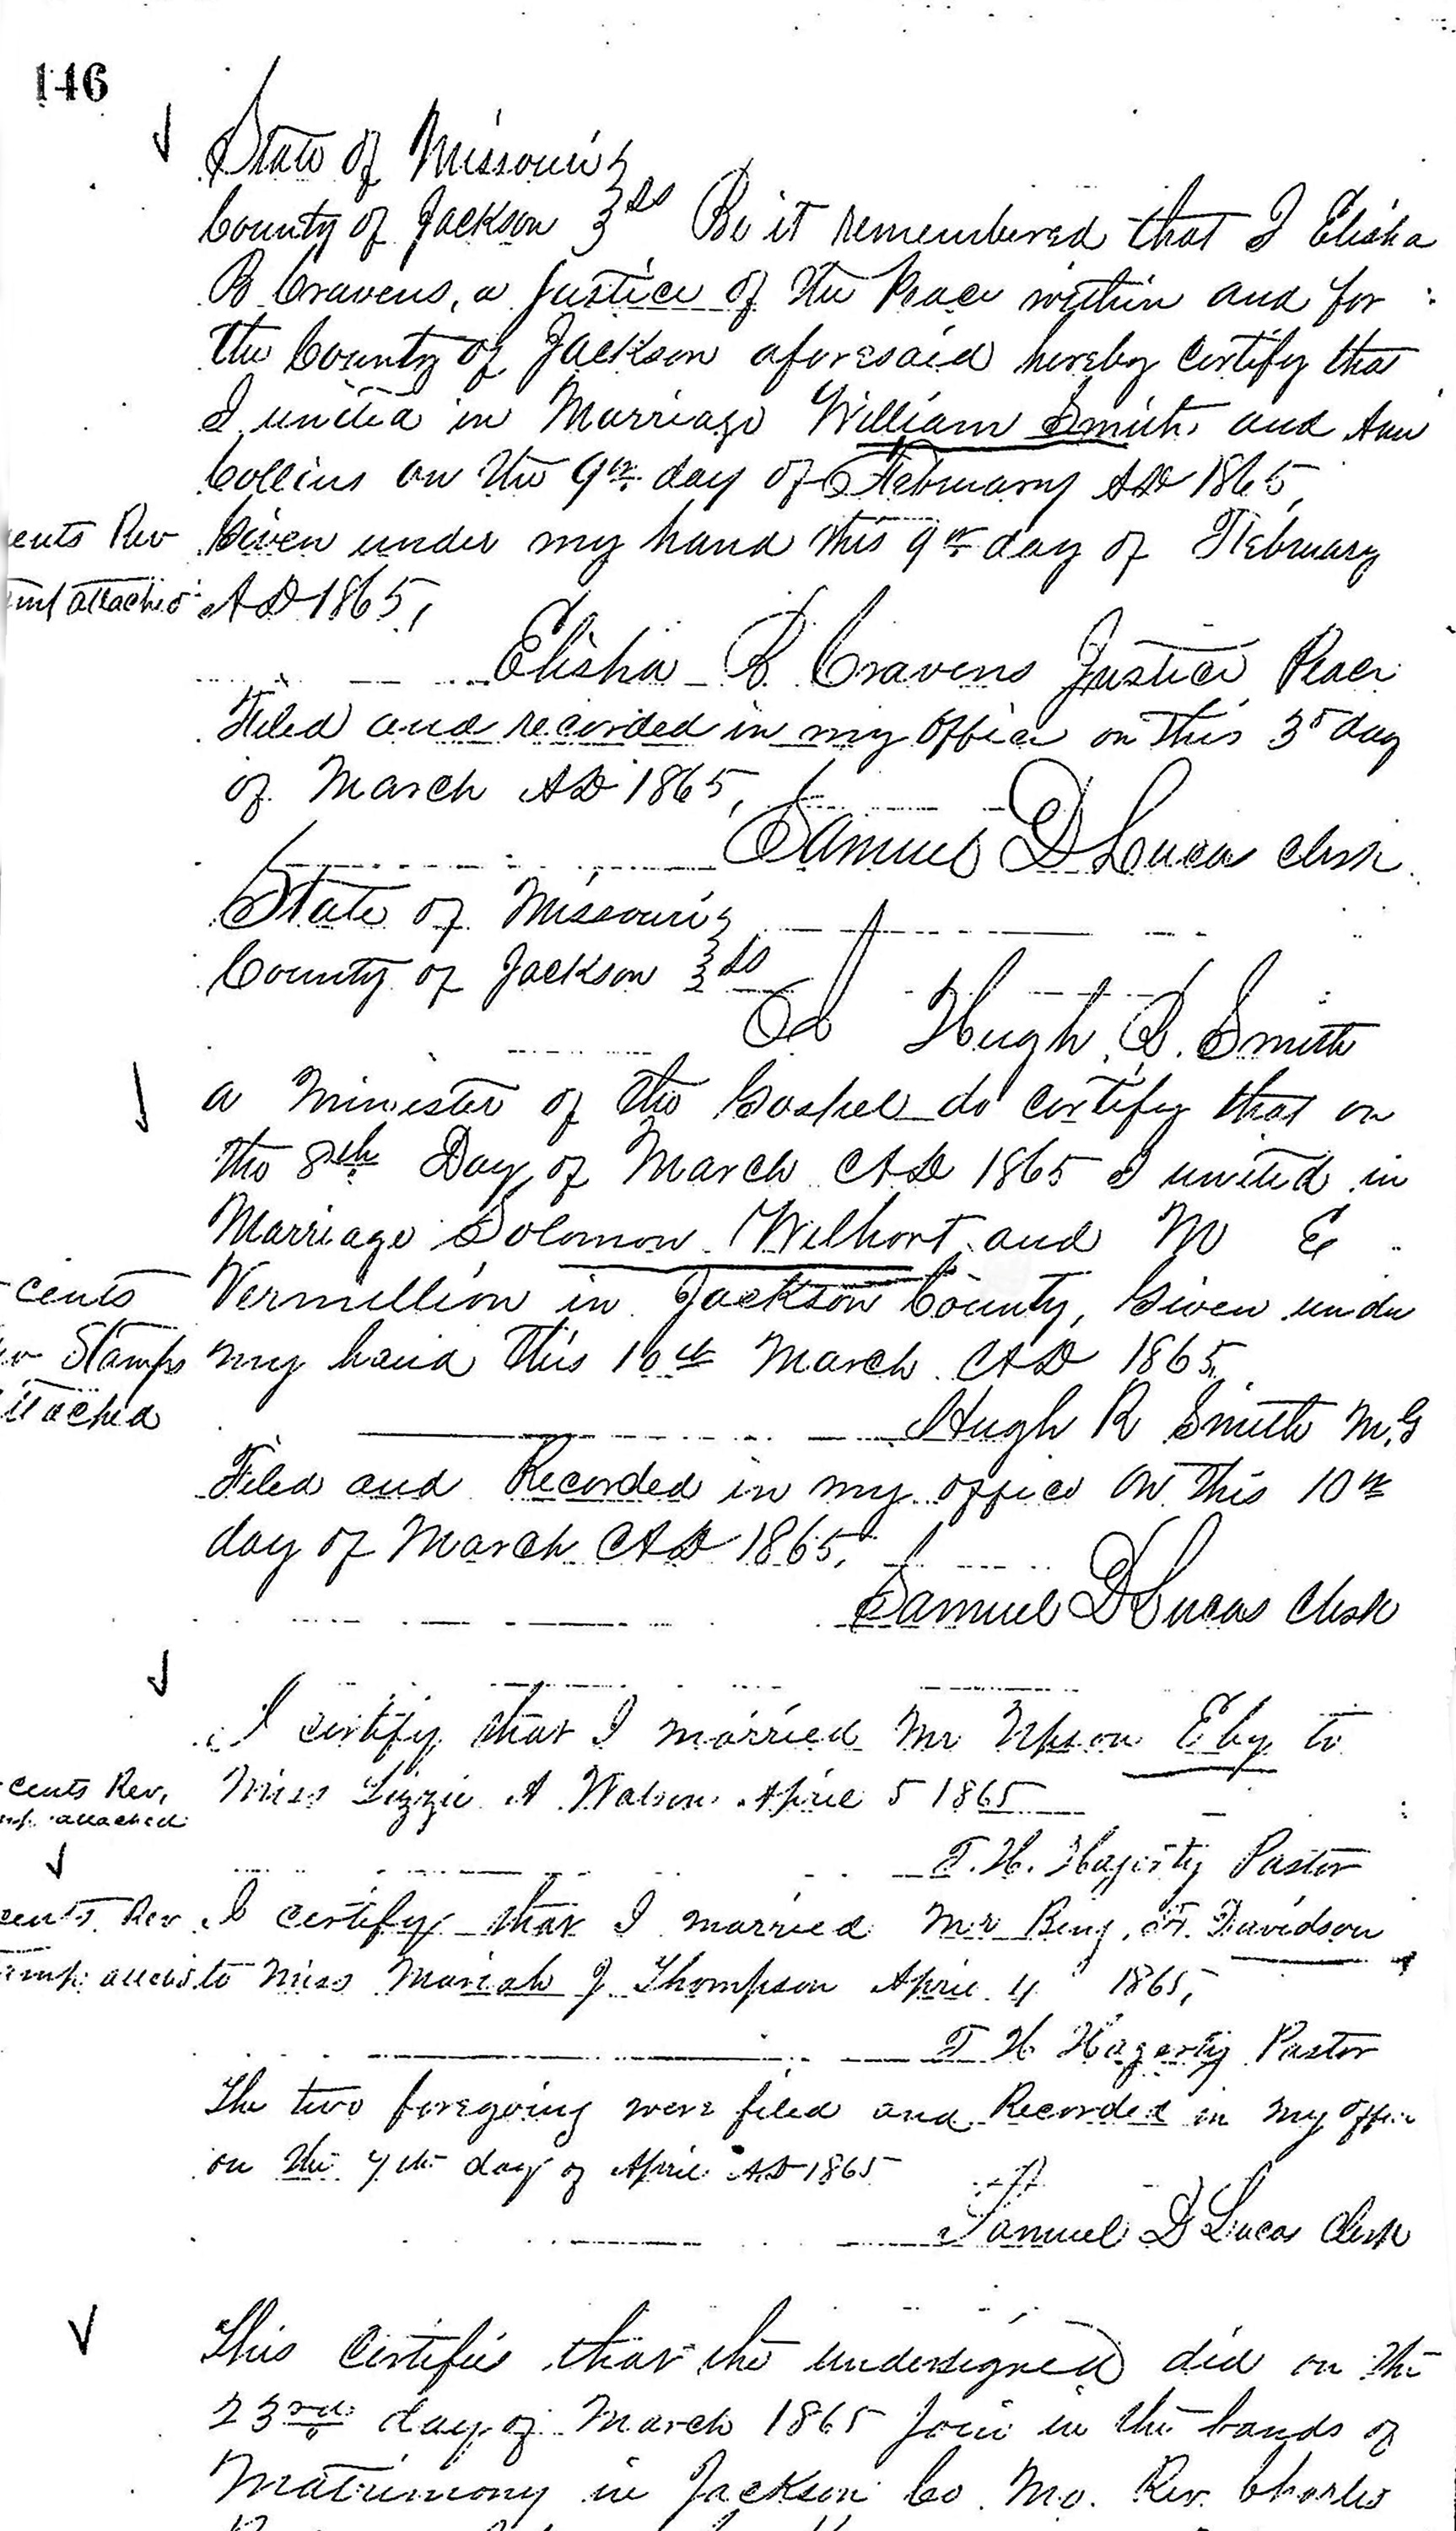 146
State of Missouri
County of Jackson ss Be it remembered that I Elisha
B Cravens, a Justice of the Peace within and for
the County of Jackson aforesaid hereby certify that
I united in Marriage William Smith and Ann
Collins on the 9th day of February AD 1865,
ents Rev Given under my hand this 9th day of February
attached AD 1865,
Elisha B Cravens Justice Peace
Filed and recorded in my office on this 3d day
of March AD 1865,
Samuel D Lucas Clerk
State of Missouri
County of Jackson ss
I Hugh R. Smith
a Minister of the Gospel do certify that on
the 8th Day of March AD 1865 I united in
Marriage Solomon Wilhort and M E
cents Vermillion in Jackson County, Given under
Stamps my hand this 10th March AD 1865,
ttached
Hugh R Smith M.G
Filed and Recorded in my office on this 10th
day of March AD 1865,
Samuel D Lucas Clerk
I certify that I married Mr Upson Eby to
cents Rev. Miss Lizzie A Watson April 5 1865
attached
T. H. Hagerty Pastor
cents Rev I certify that I married Mr Benj. F. Davidson
to Miss Mariah J Thompson April 4 1865,
T H Hagerty Pastor
The two foregoing were filed and Recorded in my office
on the 7th day of April AD 1865
Samuel D Lucas Clerk
This Certifies that the undersigned did on the
23rd day of March 1865 join in the bands of
Matrimony in Jackson Co. Mo. Rev. Charles